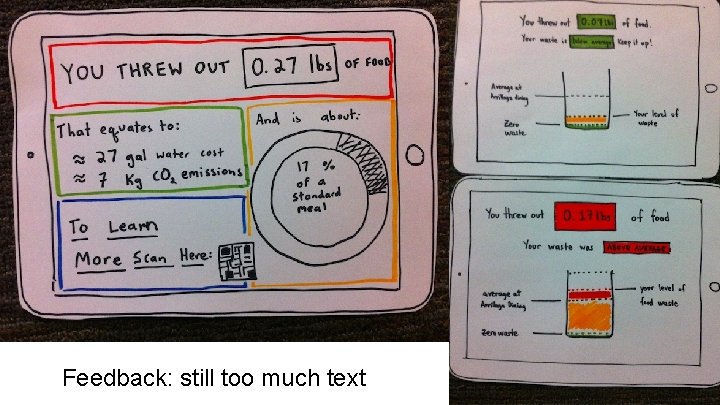 YOU THREW OUT 0.27 lbs OF FOOD
That equates to:
≈ 27 gal water cost
≈ 7 Kg CO2 emissions
And is about:
17 %
of a
standard
meal
To Learn
More Scan Here:
You threw out 0.07 lbs of food.
Your waste is below average. Keep it up!
Average at
Arrillaga dining
Your level of
waste
Zero
waste
You threw out 0.27 lbs of food
Your waste was ABOVE AVERAGE.
average at
Arrillaga Dining
your level of
food waste
Zero waste
Feedback: still too much text